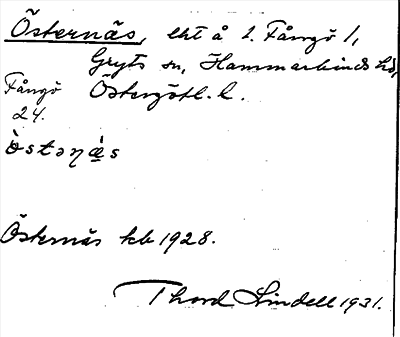 Östernäs, lht å 2. Fångö 1,
Gryts sn, Hammarkinds hd,
Fångö Östergötl. l.
24.
ò̀stəṇǽs
Östernäs kb 1928.
Thord Lindell 1931.